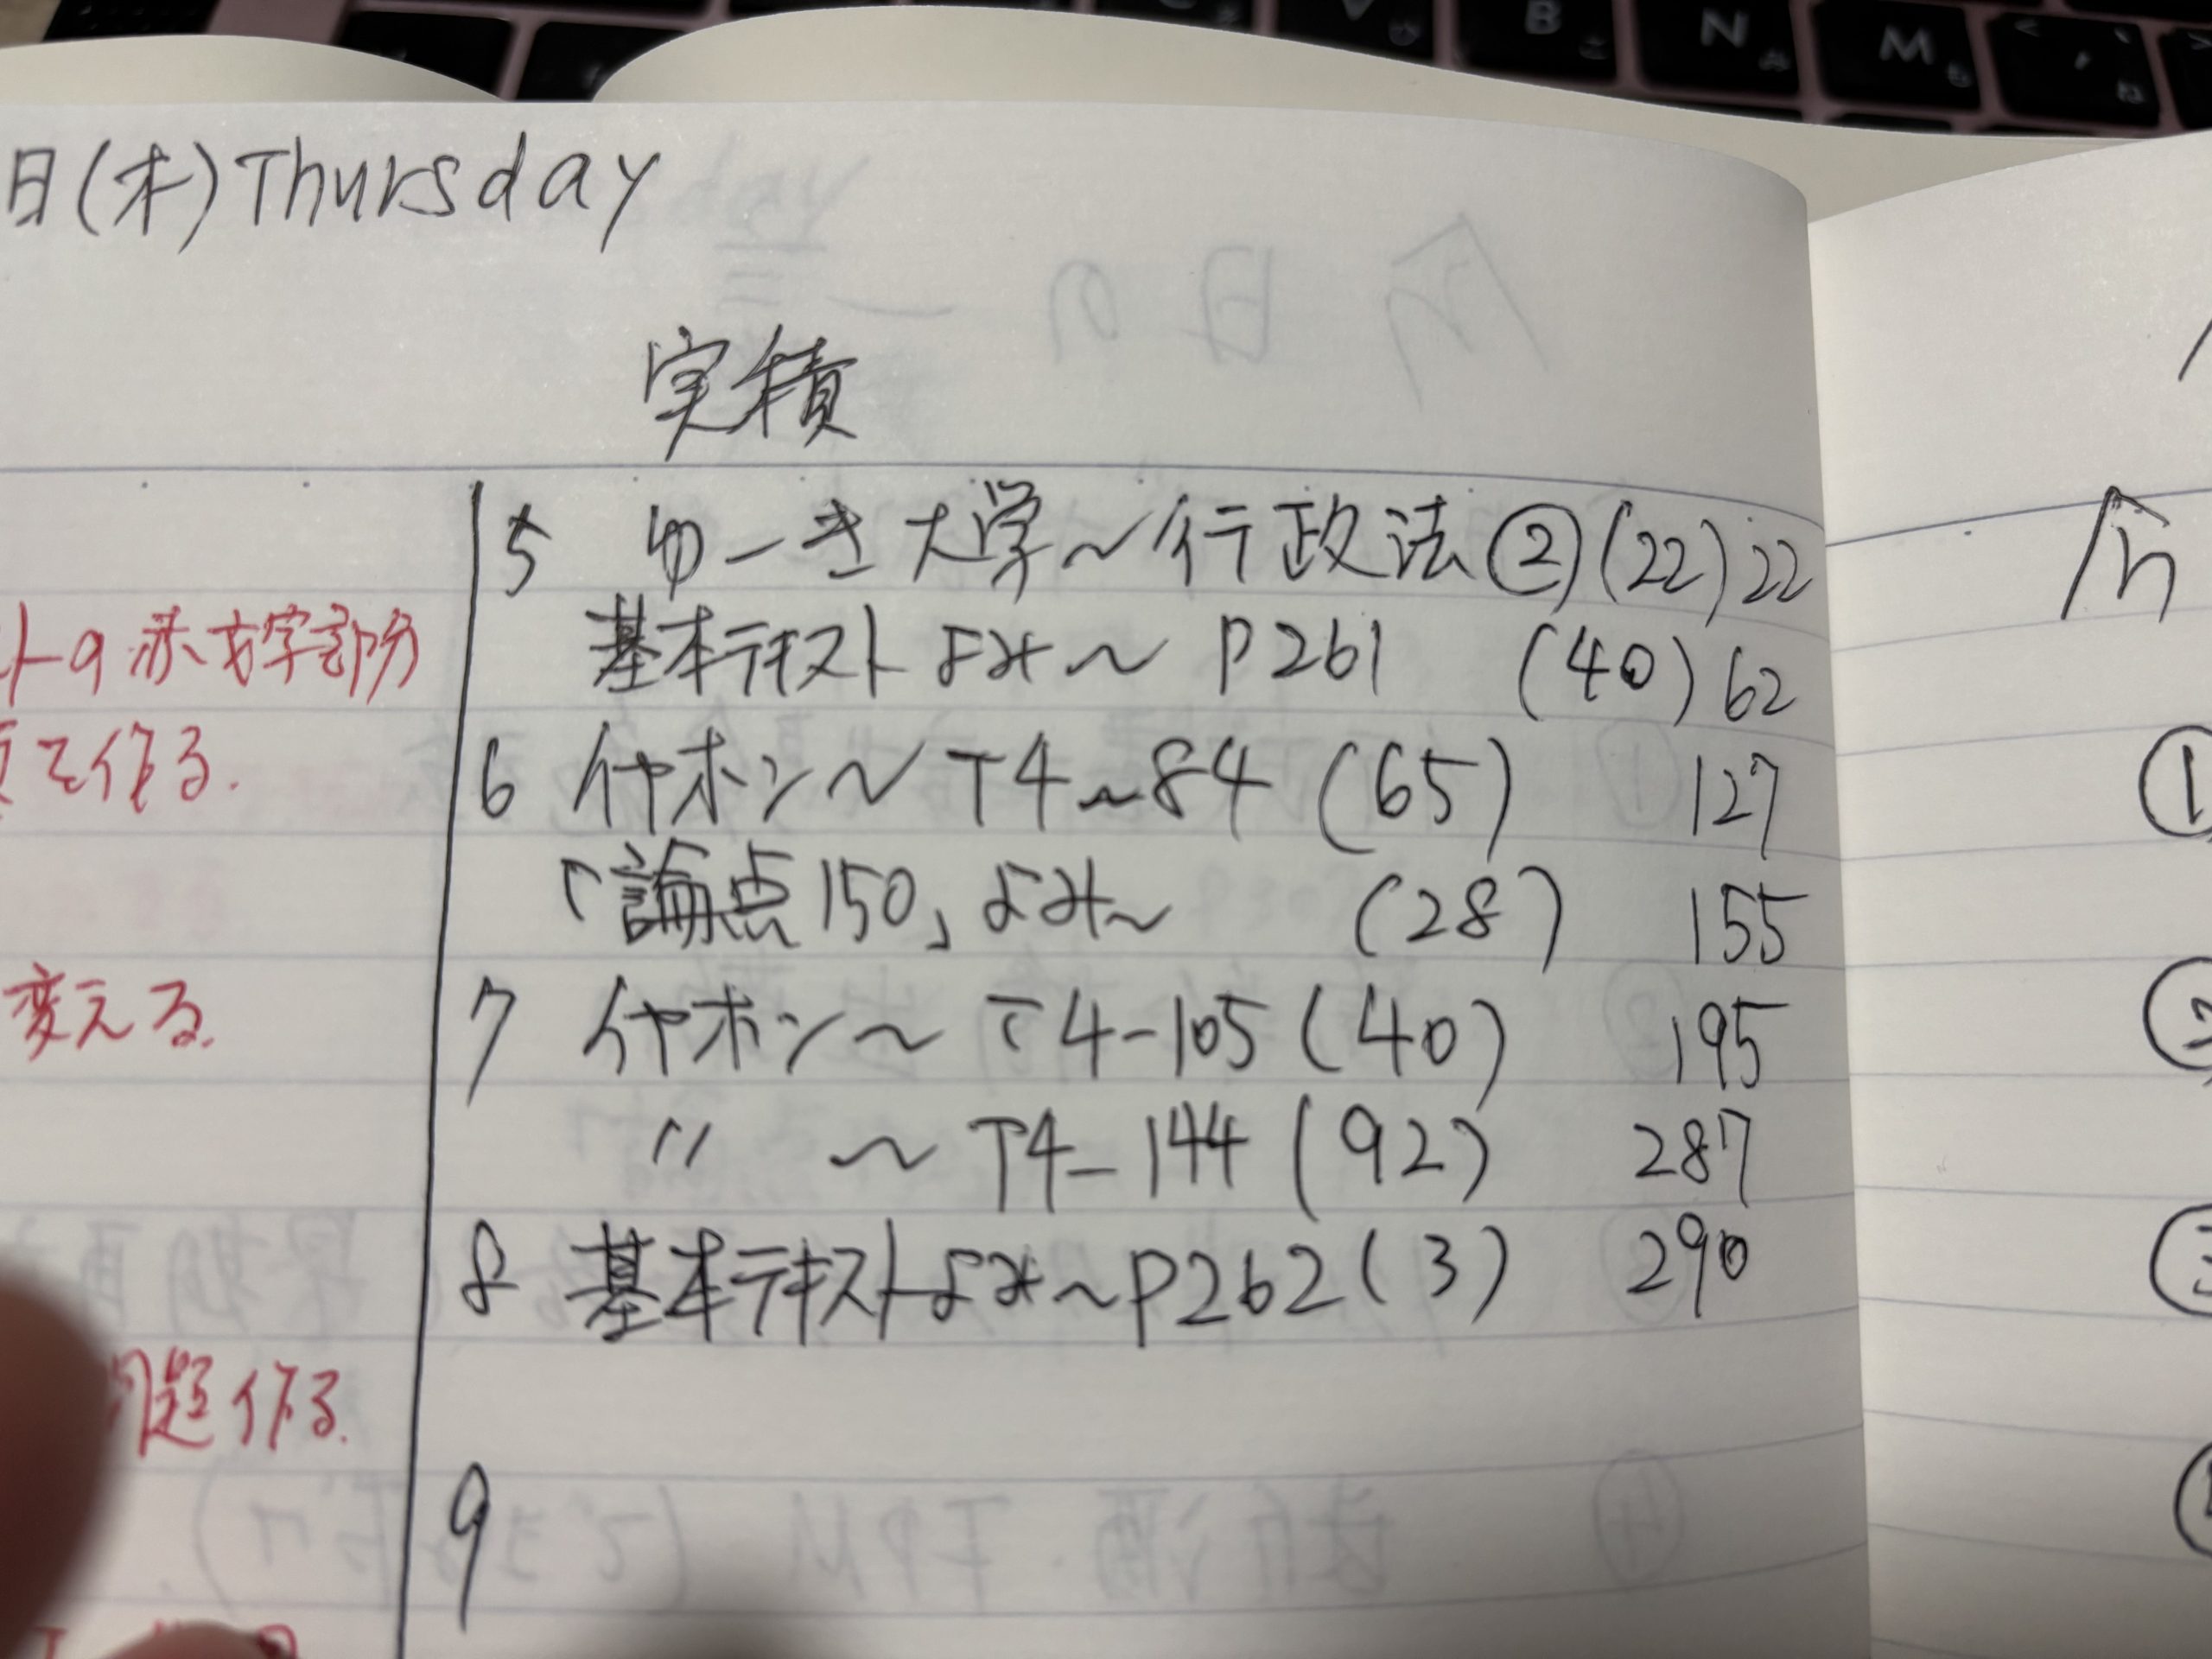 日(木)Thursday
実績
5 ゆーき大学〜行政法②(22)22
トの赤文字部分
基本テキストよみ〜P261 (40)62
を作る.
6 イヤホン〜T4〜84(65) 127
「論点150」よみ〜 (28) 155
変える.
7 イヤホン〜T4-105(40) 195
〃 〜T4-144(92) 287
8 基本テキストよみ〜P262(3) 290
問題作る.
9
今
①
②
③